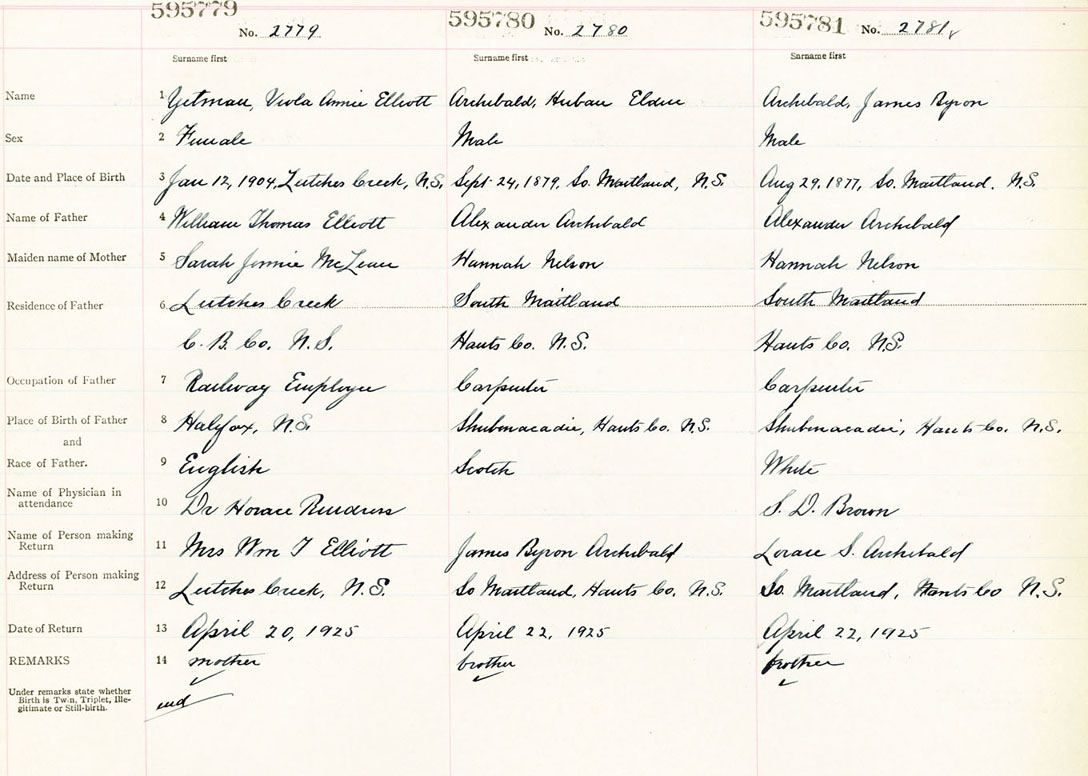 595779 595780 595781
No. 2779 No. 2780 No. 2781
Surname first Surname first Surname first
Name 1 Yetman, Viola Annie Elliott Archibald, Huban Eldin Archibald, James Byron
Sex 2 Female Male Male
Date and Place of Birth 3 Jan 12, 1904, Leitches Creek, N.S. Sept 24, 1879, So. Maitland, N.S. Aug 29, 1877, So. Maitland. N.S.
Name of Father 4 William Thomas Elliott Alexander Archibald Alexander Archibald
Maiden name of Mother 5 Sarah Jennie McLean Hannah Nelson Hannah Nelson
Residence of Father 6 Leitches Creek South Maitland South Maitland
C. B. Co. N.S. Hants Co. N.S. Hants Co. N.S.
Occupation of Father 7 Railway Employee Carpenter Carpenter
Place of Birth of Father 8 Halifax, N.S. Shubenacadie, Hants Co. N.S. Shubenacadie, Hants Co. N.S.
and
Race of Father. 9 English Scotch White
Name of Physician in
attendance 10 Dr Horace S. D. Brown
Name of Person making
Return 11 Mrs Wm T Elliott James Byron Archibald S. Archibald
Address of Person making
Return 12 Leitches Creek, N.S. So Maitland, Hants Co. N.S. So. Maitland, Hants Co N.S.
Date of Return 13 April 20, 1925 April 22, 1925 April 22, 1925
REMARKS 14 mother brother brother
Under remarks state whether
Birth is Twin, Triplet, Ille-
gitimate or Still-birth.
end